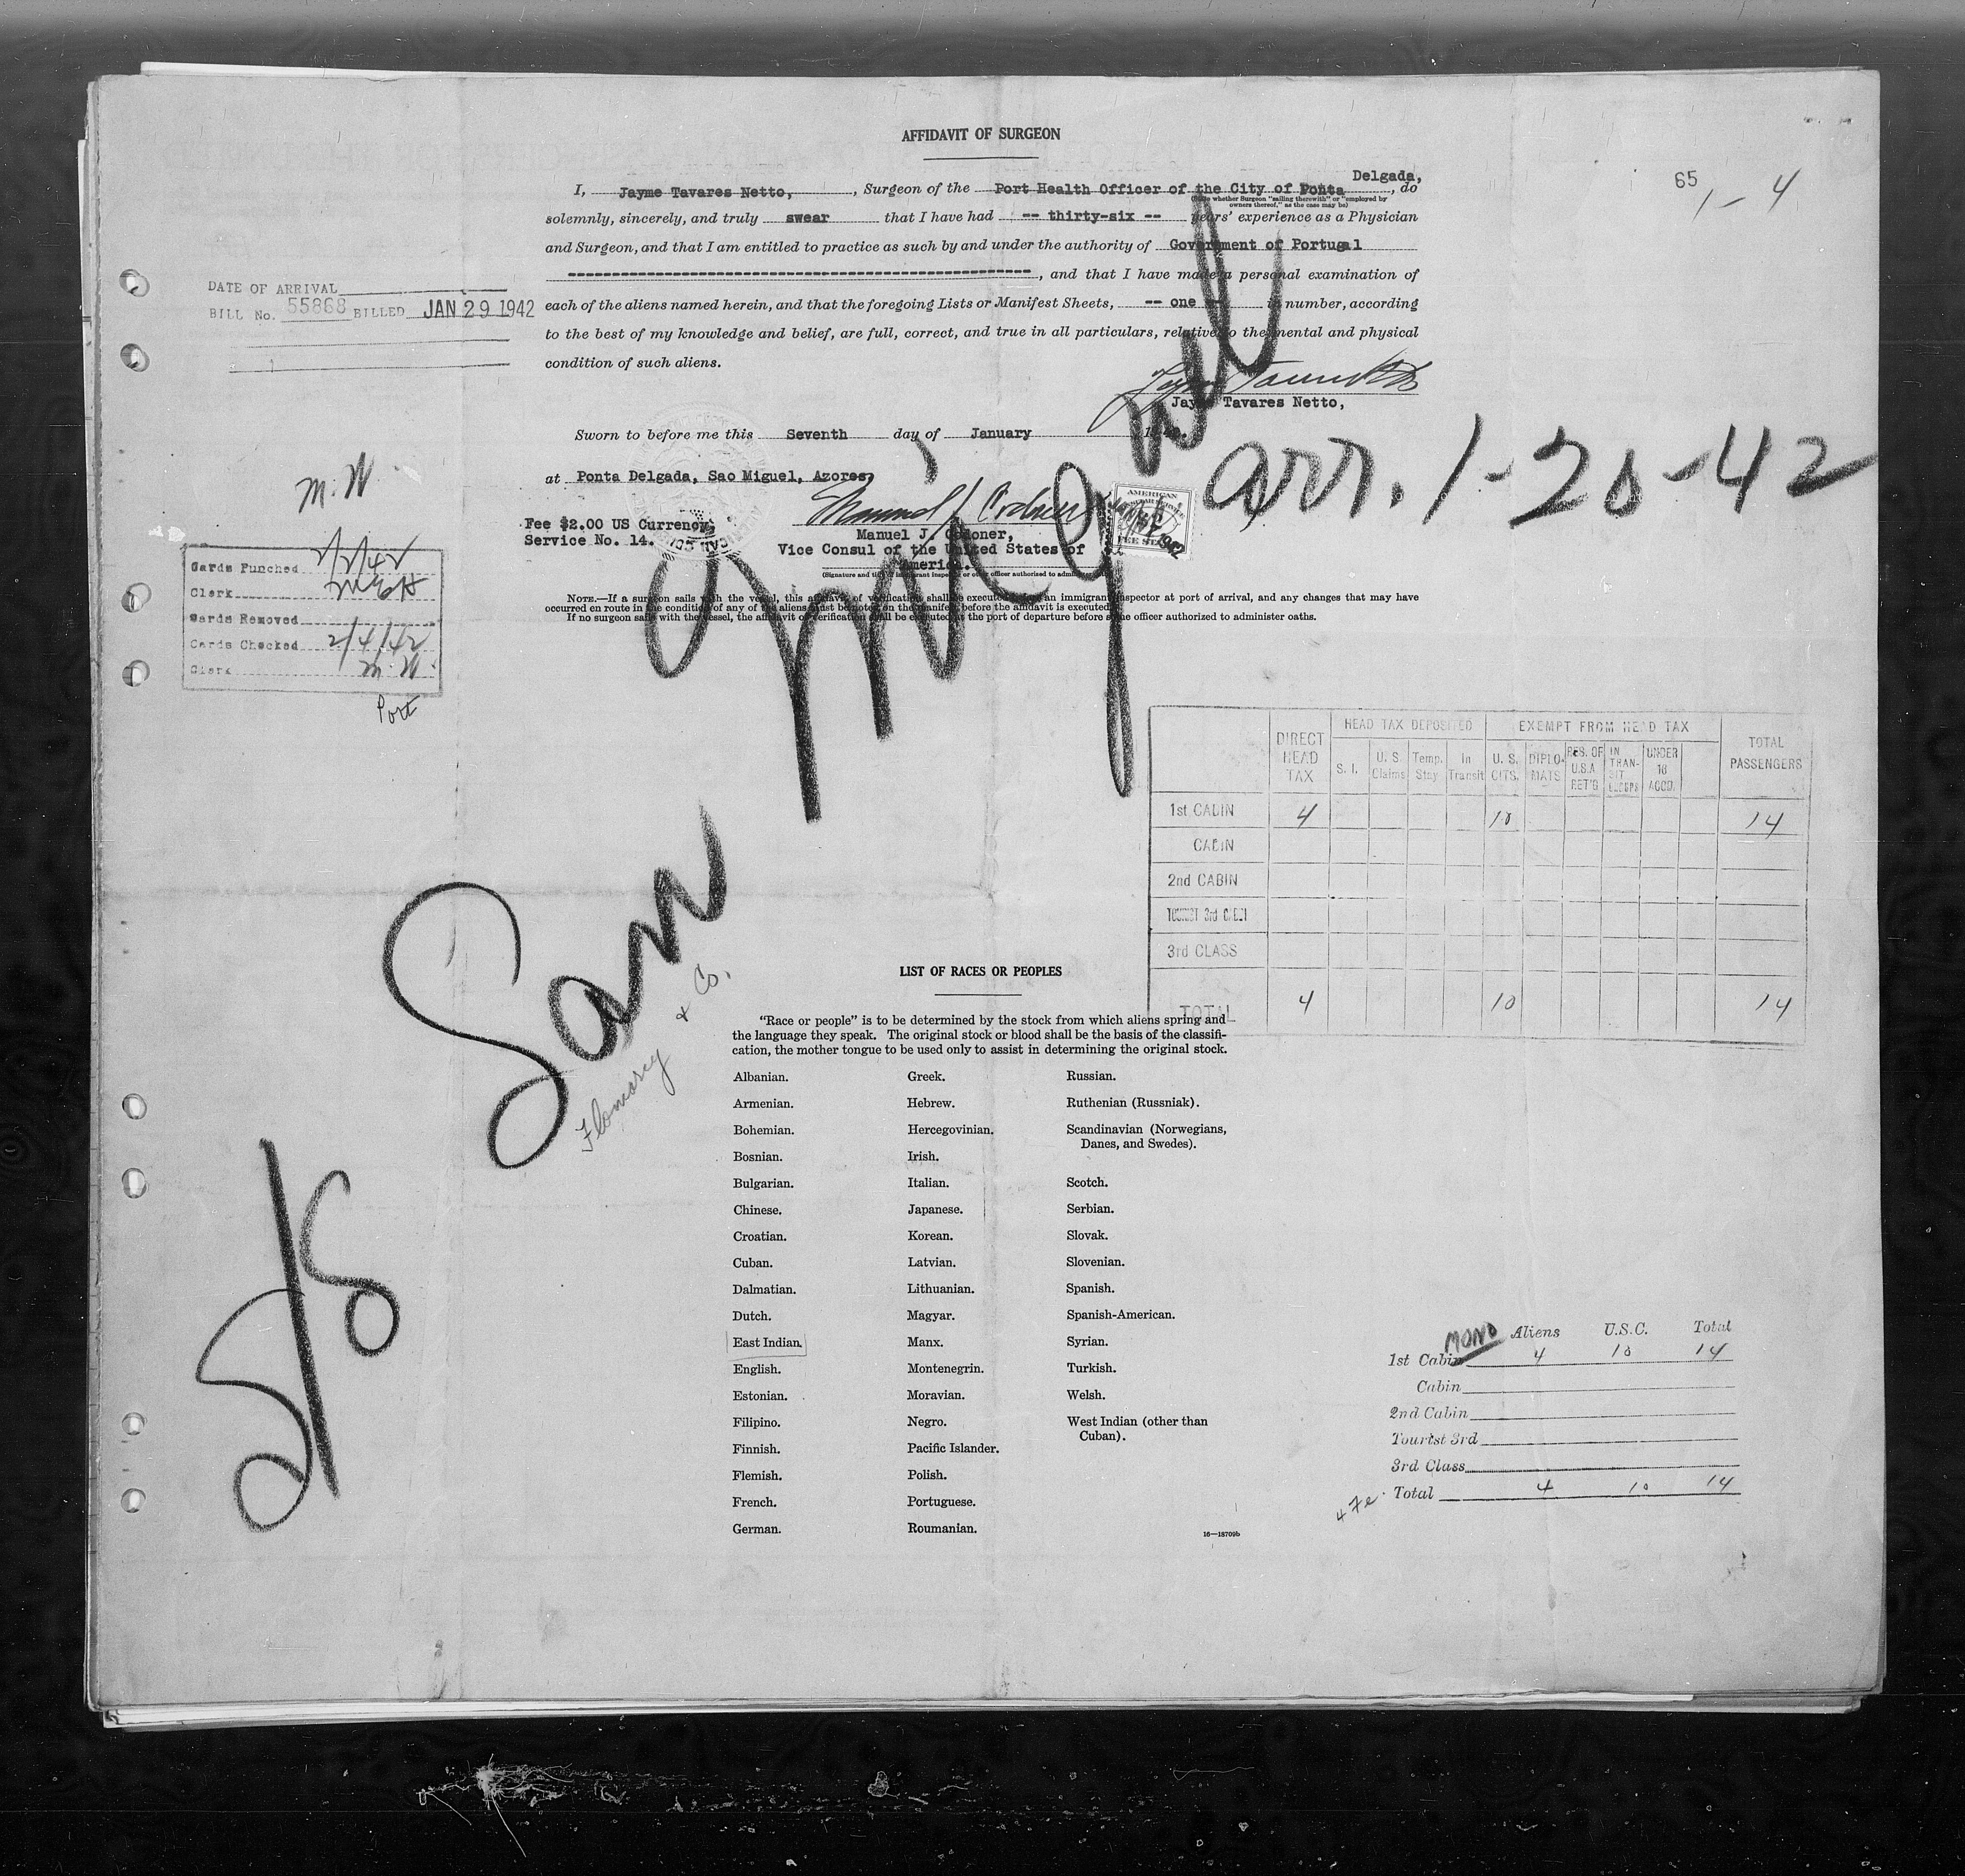 AFFIDAVIT OF SURGEON
65
1-4
Delgada,
I, Jayme Tavares Netto, , Surgeon of the Port Health Officer of the City of Ponta , do
(State whether Surgeon "sailing therewith" or "employed by
owners thereof," as the case may be)
solemnly, sincerely, and truly swear that I have had -- thirty-six -- years' experience as a Physician
and Surgeon, and that I am entitled to practice as such by and under the authority of Government of Portugal
, and that I have made a personal examination of
each of the aliens named herein, and that the foregoing Lists or Manifest Sheets, -- one -- in number, according
to the best of my knowledge and belief, are full, correct, and true in all particulars, relative to the mental and physical
condition of such aliens.
Jayme Tavares Netto,
DATE OF ARRIVAL
BILL No. 55868 BILLED JAN 29 1942
Sworn to before me this Seventh day of January
at Ponta Delgada, Sao Miguel, Azores,
Fee $2.00 US Currency,
Service No. 14.
Manuel J. Codoner,
Vice Consul of the United States of
America.
(Signature and title of immigrant inspector or other officer authorized to administer oaths)
AMERICAN
FEE STAMP
arr. 1-20-42
NOTE.—If a surgeon sails with the vessel, this affidavit of verification shall be executed before an immigrant inspector at port of arrival, and any changes that may have
occurred en route in the condition of any of the aliens must be noted on the manifest before the affidavit is executed.
If no surgeon sails with the vessel, the affidavit of verification shall be executed at the port of departure before some officer authorized to administer oaths.
M.W.
Cards Punched 2/2/42
Clerk
Cards Removed
Cards Checked 2/4/42
Clerk M.W.
Port
S/S San Miguel
Flomarcy & Co.
HEAD TAX DEPOSITED EXEMPT FROM HEAD TAX
DIRECT HEAD TAX S. I. U. S. Claims Temp. Stay In Transit U. S. CITS. DIPLO-MATS RES. OF U.S.A. RET'G IN TRAN-SIT UNDER 16 ACCD. TOTAL PASSENGERS
1st CABIN 4 10 14
CABIN
2nd CABIN
TOURIST 3rd CABIN
3rd CLASS
TOTAL 4 10 14
LIST OF RACES OR PEOPLES
"Race or people" is to be determined by the stock from which aliens spring and
the language they speak. The original stock or blood shall be the basis of the classifi-
cation, the mother tongue to be used only to assist in determining the original stock.
Albanian.
Armenian.
Bohemian.
Bosnian.
Bulgarian.
Chinese.
Croatian.
Cuban.
Dalmatian.
Dutch.
East Indian.
English.
Estonian.
Filipino.
Finnish.
Flemish.
French.
German.
Greek.
Hebrew.
Hercegovinian.
Irish.
Italian.
Japanese.
Korean.
Latvian.
Lithuanian.
Magyar.
Manx.
Montenegrin.
Moravian.
Negro.
Pacific Islander.
Polish.
Portuguese.
Roumanian.
Russian.
Ruthenian (Russniak).
Scandinavian (Norwegians,
Danes, and Swedes).
Scotch.
Serbian.
Slovak.
Slovenian.
Spanish.
Spanish-American.
Syrian.
Turkish.
Welsh.
West Indian (other than
Cuban).
16—18709b
MONO Aliens U.S.C. Total
1st Cabin 4 10 14
Cabin
2nd Cabin
Tourist 3rd
3rd Class
Total 4 10 14